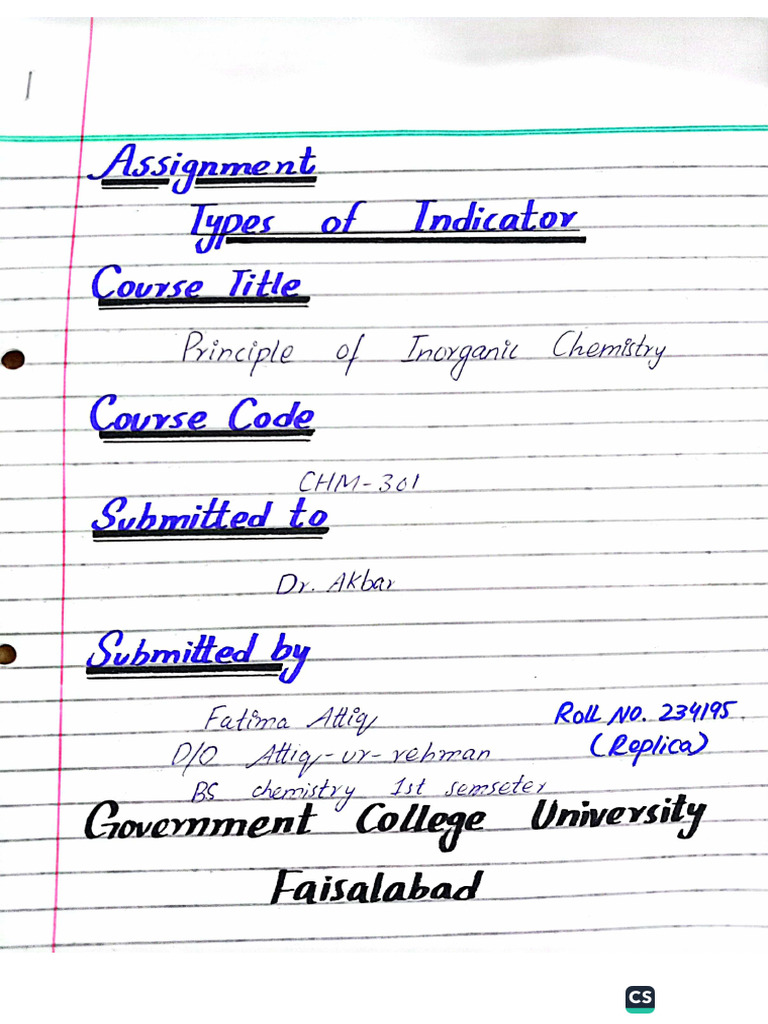 Assignment
Types of Indicator
Course Title
Principle of Inorganic Chemistry
Course Code
CHM-301
Submitted to
Dr. Akbar
Submitted by
Fatima Attiq Roll NO. 234195
D/O Attiq-ur-rehman (Replica)
BS chemistry 1st semseter
Government College University
Faisalabad
CS